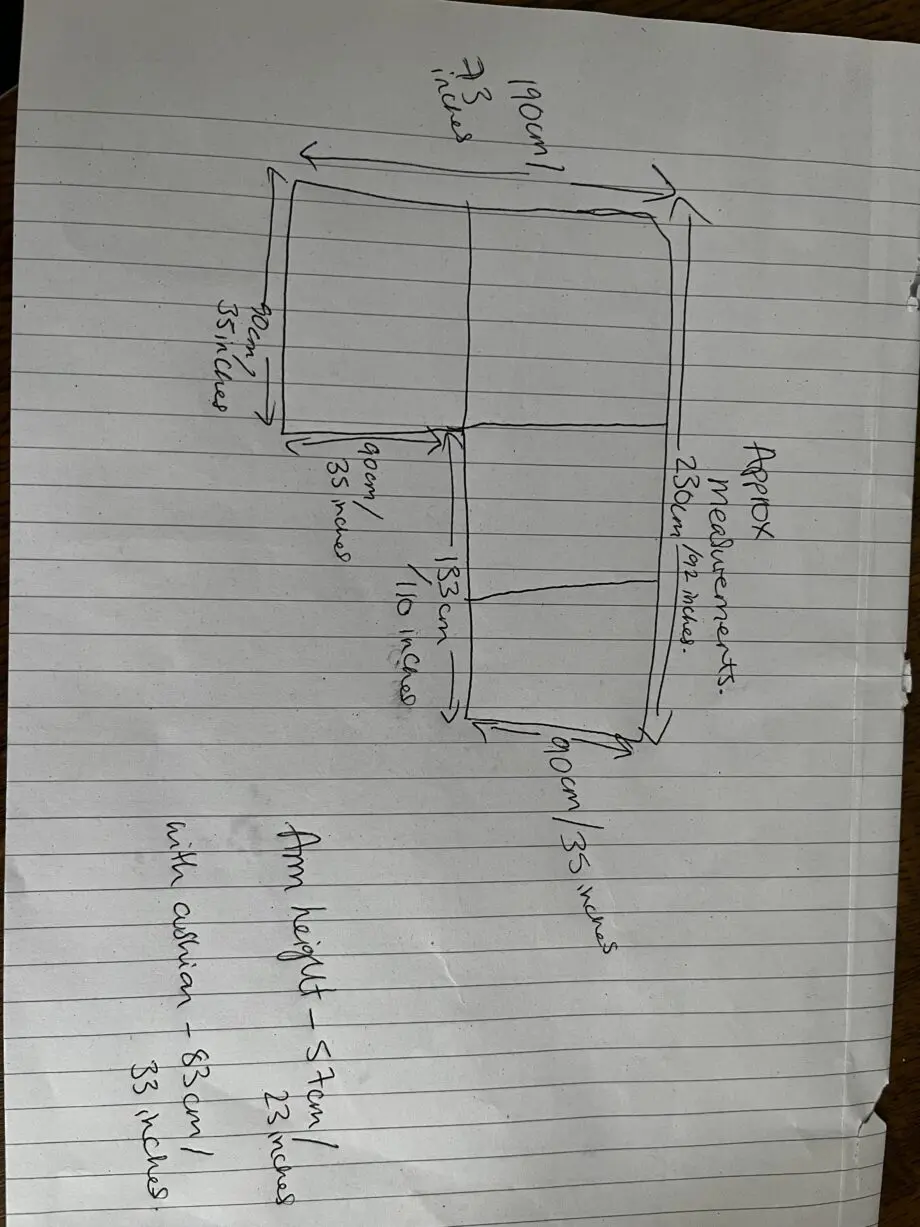 Approx
measurements.
230cm/92 inches.
190cm/
73
inches
90cm/35 inches
133cm
/110 inches
90cm/
35 inches
90cm/
35 inches
Arm height - 57cm/
23 inches
with cushion - 83cm/
33 inches.